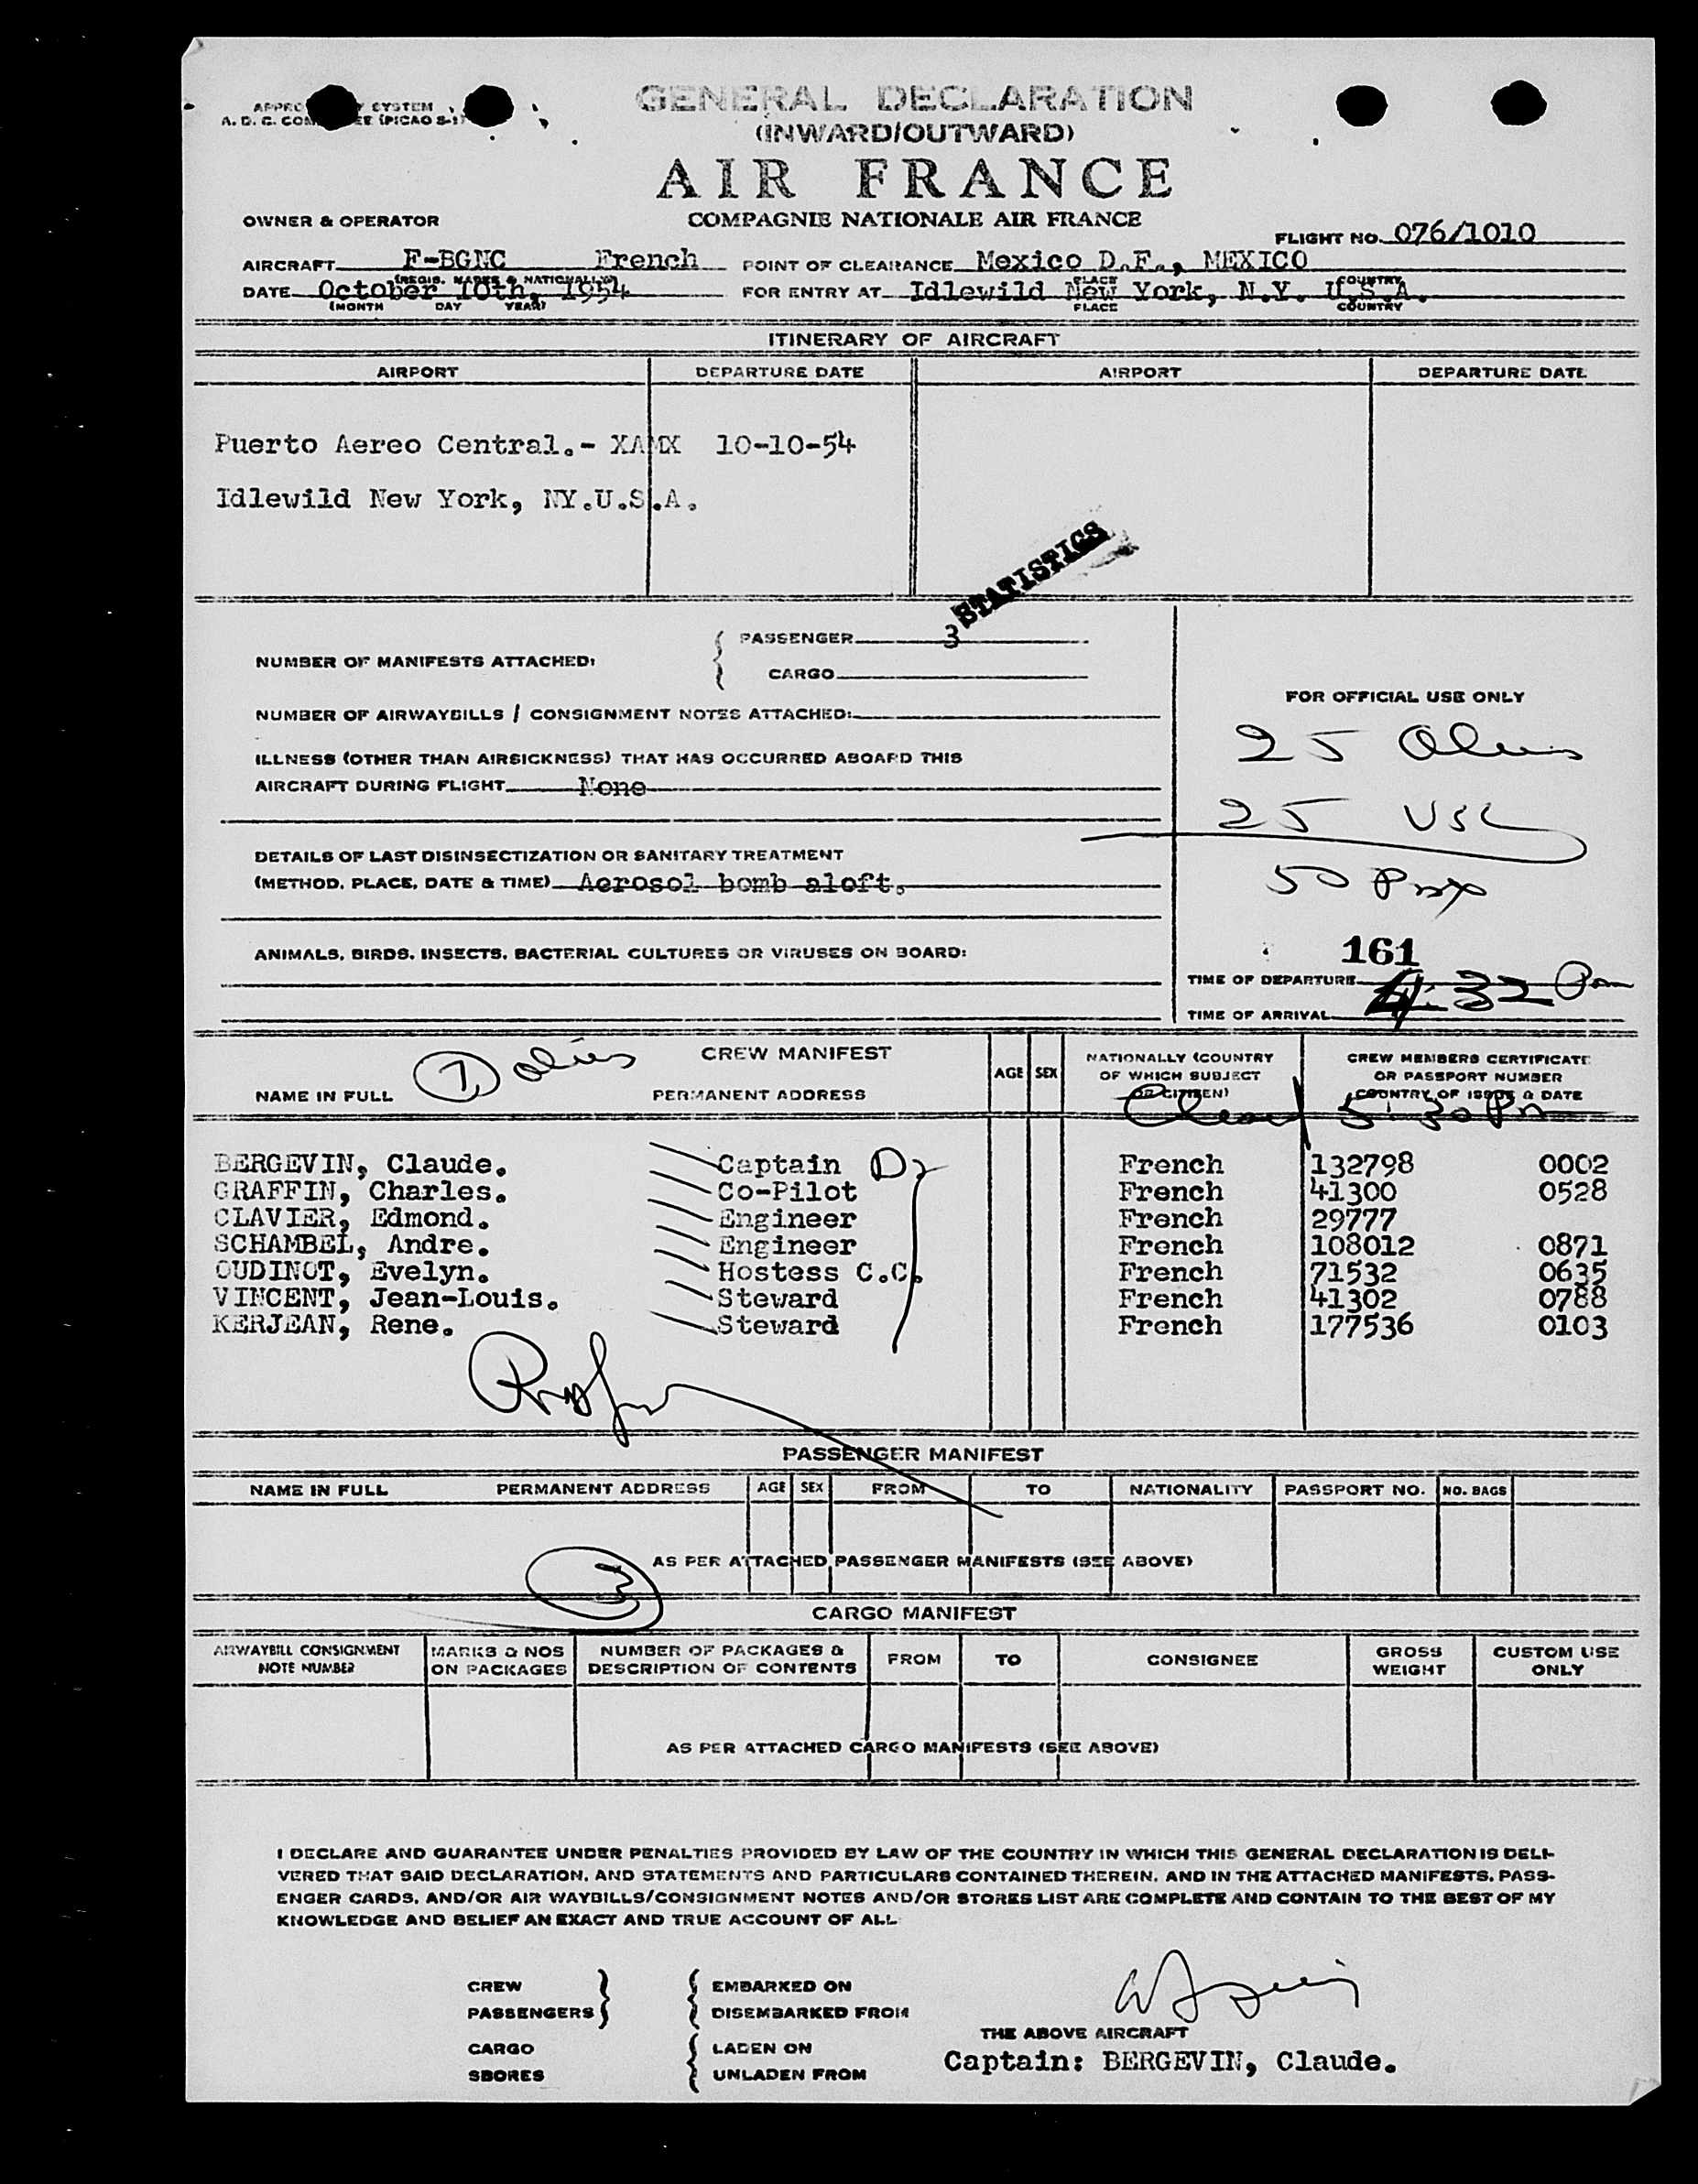 GENERAL DECLARATION
(INWARD/OUTWARD)
AIR FRANCE
COMPAGNIE NATIONALE AIR FRANCE
SYSTEM
A. D. C. (PICAO S-1)
OWNER & OPERATOR
FLIGHT NO. 076/1010
AIRCRAFT F-BGNC French POINT OF CLEARANCE Mexico D.F., MEXICO
(REGIS. MARKS & NATIONALLY) PLACE COUNTRY
DATE October 10th, 1954 FOR ENTRY AT Idlewild New York, N.Y. U.S.A.
(MONTH DAY YEAR) PLACE COUNTRY
ITINERARY OF AIRCRAFT
AIRPORT DEPARTURE DATE AIRPORT DEPARTURE DATE
Puerto Aereo Central.- XAMX 10-10-54
Idlewild New York, NY.U.S.A.
STATISTICS
PASSENGER 3
NUMBER OF MANIFESTS ATTACHED:
CARGO
FOR OFFICIAL USE ONLY
NUMBER OF AIRWAYBILLS / CONSIGNMENT NOTES ATTACHED:
25
ILLNESS (OTHER THAN AIRSICKNESS) THAT HAS OCCURRED ABOARD THIS
AIRCRAFT DURING FLIGHT None
25 USC
DETAILS OF LAST DISINSECTIZATION OR SANITARY TREATMENT
(METHOD, PLACE, DATE & TIME) Aerosol bomb aloft.
50
161
ANIMALS, BIRDS, INSECTS, BACTERIAL CULTURES OR VIRUSES ON BOARD:
TIME OF DEPARTURE
4:32 Pm
TIME OF ARRIVAL
CREW MANIFEST
7
NAME IN FULL PERMANENT ADDRESS AGE SEX
NATIONALLY (COUNTRY
OF WHICH SUBJECT
OR CITIZEN)
CREW MEMBERS CERTIFICATE
OR PASSPORT NUMBER
COUNTRY OF ISSUE & DATE
5:30 Pm
BERGEVIN, Claude. Captain French 132798 0002
GRAFFIN, Charles. Co-Pilot French 41300 0528
CLAVIER, Edmond. Engineer French 29777
SCHAMBEL, Andre. Engineer French 108012 0871
OUDINOT, Evelyn. Hostess C.C. French 71532 0635
VINCENT, Jean-Louis. Steward French 41302 0788
KERJEAN, Rene. Steward French 177536 0103
PASSENGER MANIFEST
NAME IN FULL PERMANENT ADDRESS AGE SEX FROM TO NATIONALITY PASSPORT NO. NO. BAGS
AS PER ATTACHED PASSENGER MANIFESTS (SEE ABOVE)
3
CARGO MANIFEST
AIRWAYBILL CONSIGNMENT NOTE NUMBER
MARKS & NOS ON PACKAGES
NUMBER OF PACKAGES & DESCRIPTION OF CONTENTS
FROM TO CONSIGNEE
GROSS WEIGHT
CUSTOM USE ONLY
AS PER ATTACHED CARGO MANIFESTS (SEE ABOVE)
I DECLARE AND GUARANTEE UNDER PENALTIES PROVIDED BY LAW OF THE COUNTRY IN WHICH THIS GENERAL DECLARATION IS DELI-
VERED THAT SAID DECLARATION, AND STATEMENTS AND PARTICULARS CONTAINED THEREIN, AND IN THE ATTACHED MANIFESTS, PASS-
ENGER CARDS, AND/OR AIR WAYBILLS/CONSIGNMENT NOTES AND/OR STORES LIST ARE COMPLETE AND CONTAIN TO THE BEST OF MY
KNOWLEDGE AND BELIEF AN EXACT AND TRUE ACCOUNT OF ALL
CREW EMBARKED ON
PASSENGERS DISEMBARKED FROM
THE ABOVE AIRCRAFT
CARGO LADEN ON
Captain: BERGEVIN, Claude.
SBORES UNLADEN FROM